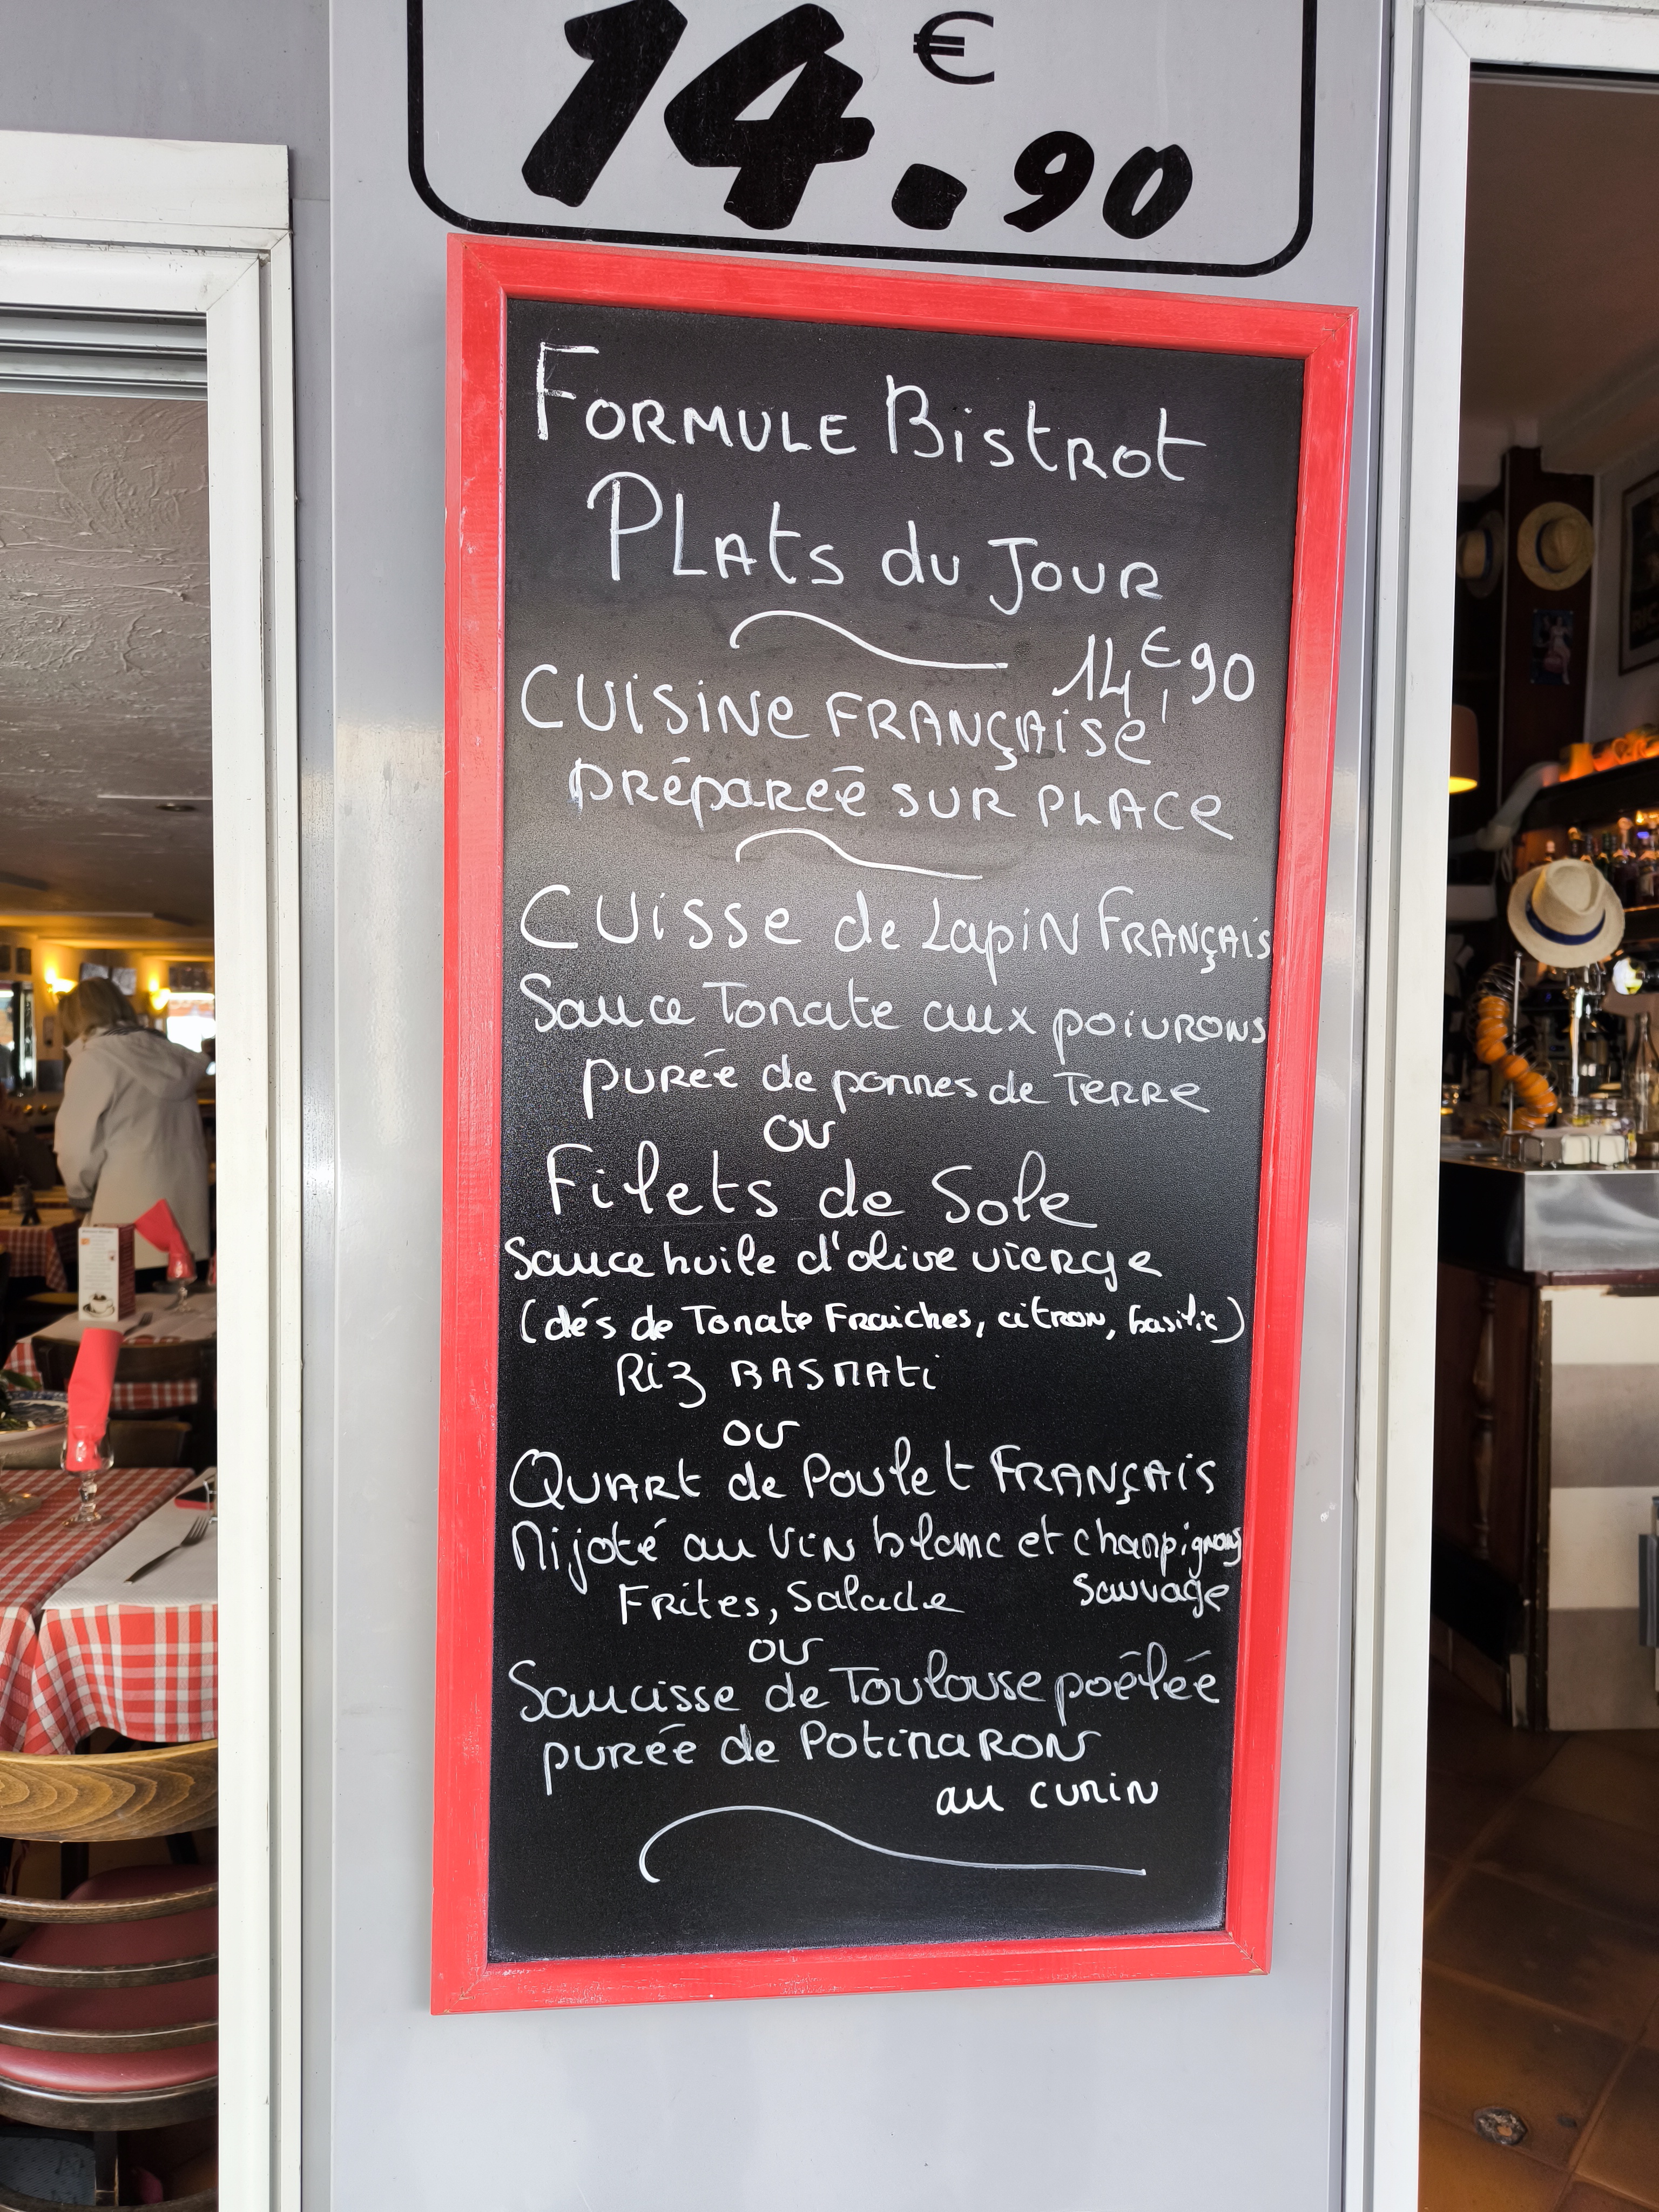 14.€90
FORMULE Bistrot
PLAts du JOUR
14,€90
CUISINe FRANÇAISe
PRéparéé SUR PLACe
CUisse de Lapin FRANÇAIS
Sauce Tomate aux poivRons
puRée de pommes de TeRRe
ou
Filets de Sole
Sauce huile d'olive vieRge
(dés de Tomate Fraiches, citron, basilic)
Riz BASMAti
ou
QUARt de Poulet FRANÇAiS
Mijoté au ViN blanc et champignons
Sauvage
FRites, Salade
ou
Saucisse de Toulouse poêléé
purée de PotimaRon
au cumiN